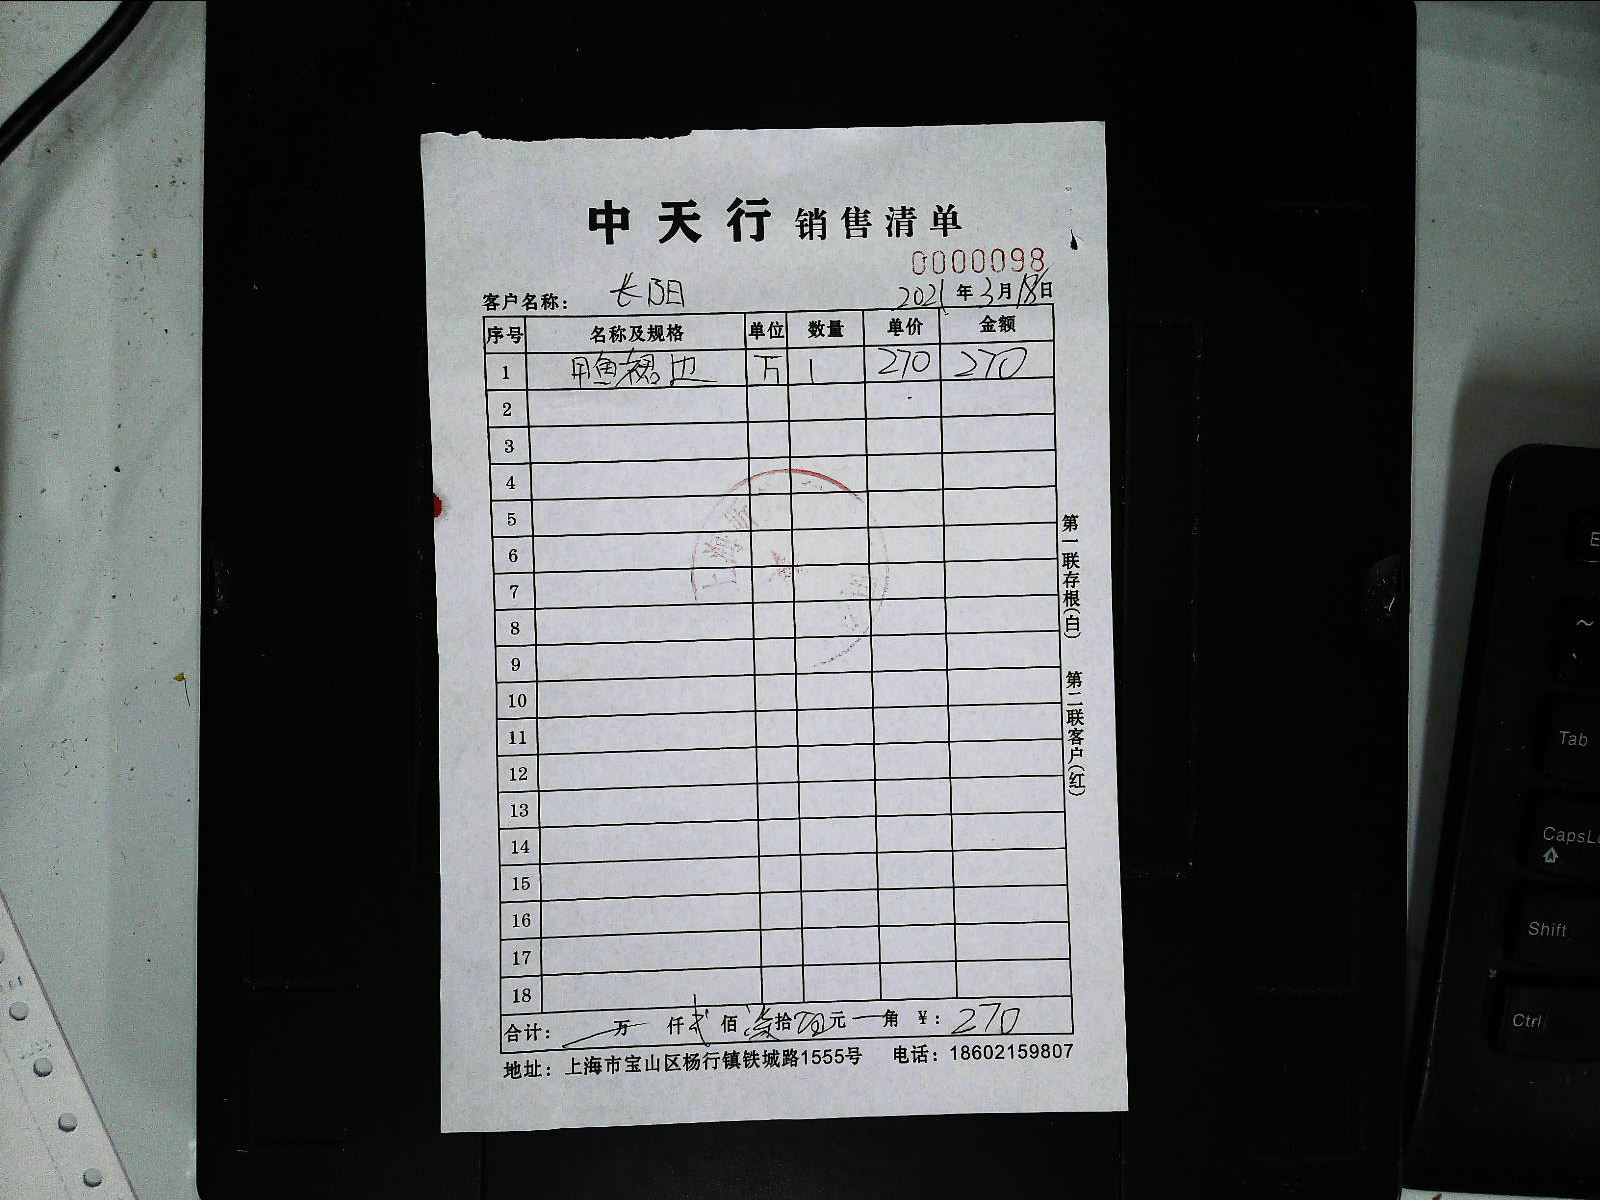 中天行 销售清单
0000098
客户名称: 长阳 2021年3月18日
序号 名称及规格 单位 数量 单价 金额
1 甲鱼裙边 万 1 270 270
2
3
4
5
6
7
8
9
10
11
12
13
14
15
16
17
18
合计: 万 仟 贰 佰 柒 拾 元 角 ¥: 270
地址: 上海市宝山区杨行镇铁城路1555号 电话: 18602159807
第一联存根(白) 第二联客户(红)
上海
Tab
CapsLo
Shift
Ctrl